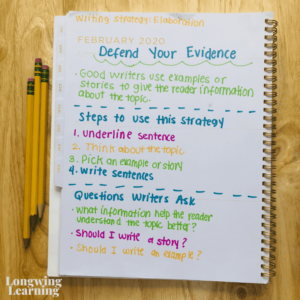 Writing Strategy: Elaboration
FEBRUARY 2020
Defend Your Evidence
- Good writers use examples or
stories to give the reader information
about the topic.
Steps to use this strategy
1. underline sentence
2. Think about the topic
3. Pick an example or story
4. write sentences
Questions Writers Ask
- what information help the reader
understand the topic better?
- Should I write a story?
- Should I write an example?
Longwing
Learning